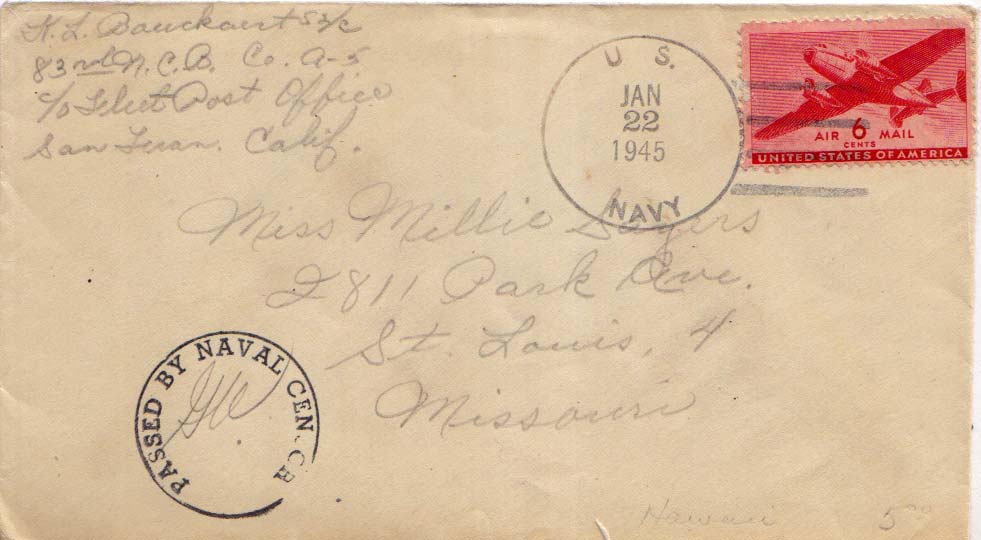 K. L. Bauckaert S2/c
83rd N.C.B. Co. A-5
c/o Fleet Post Office
San Fran. Calif.
U. S.
JAN
22
1945
NAVY
AIR 6 MAIL
CENTS
UNITED STATES OF AMERICA
Miss Millie Sayers
2811 Park Ave.
St. Louis, 4
Missouri
PASSED BY NAVAL CEN
Hawaii 5⁰⁰